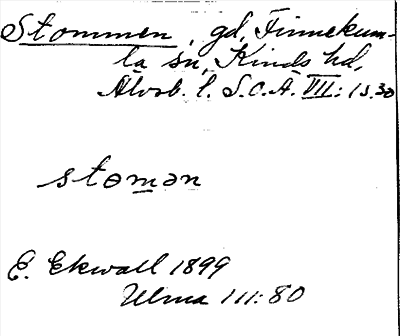 Stommen, gd, Finnekum-
la sn, Kinds hd,
Älvsb. l. S.O.Ä. VII: 1 s. 30
stomən
E. Ekwall 1899
Ulma 111:80